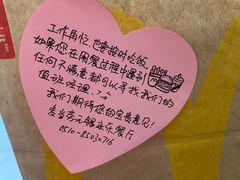 工作再忙,也要按时吃饭。
如果您在用餐过程中遇到
任何不满意都可以寻找我们的
值班经理.
我们期待您的宝贵意见!
麦当劳无锡永乐餐厅
0510-85030716